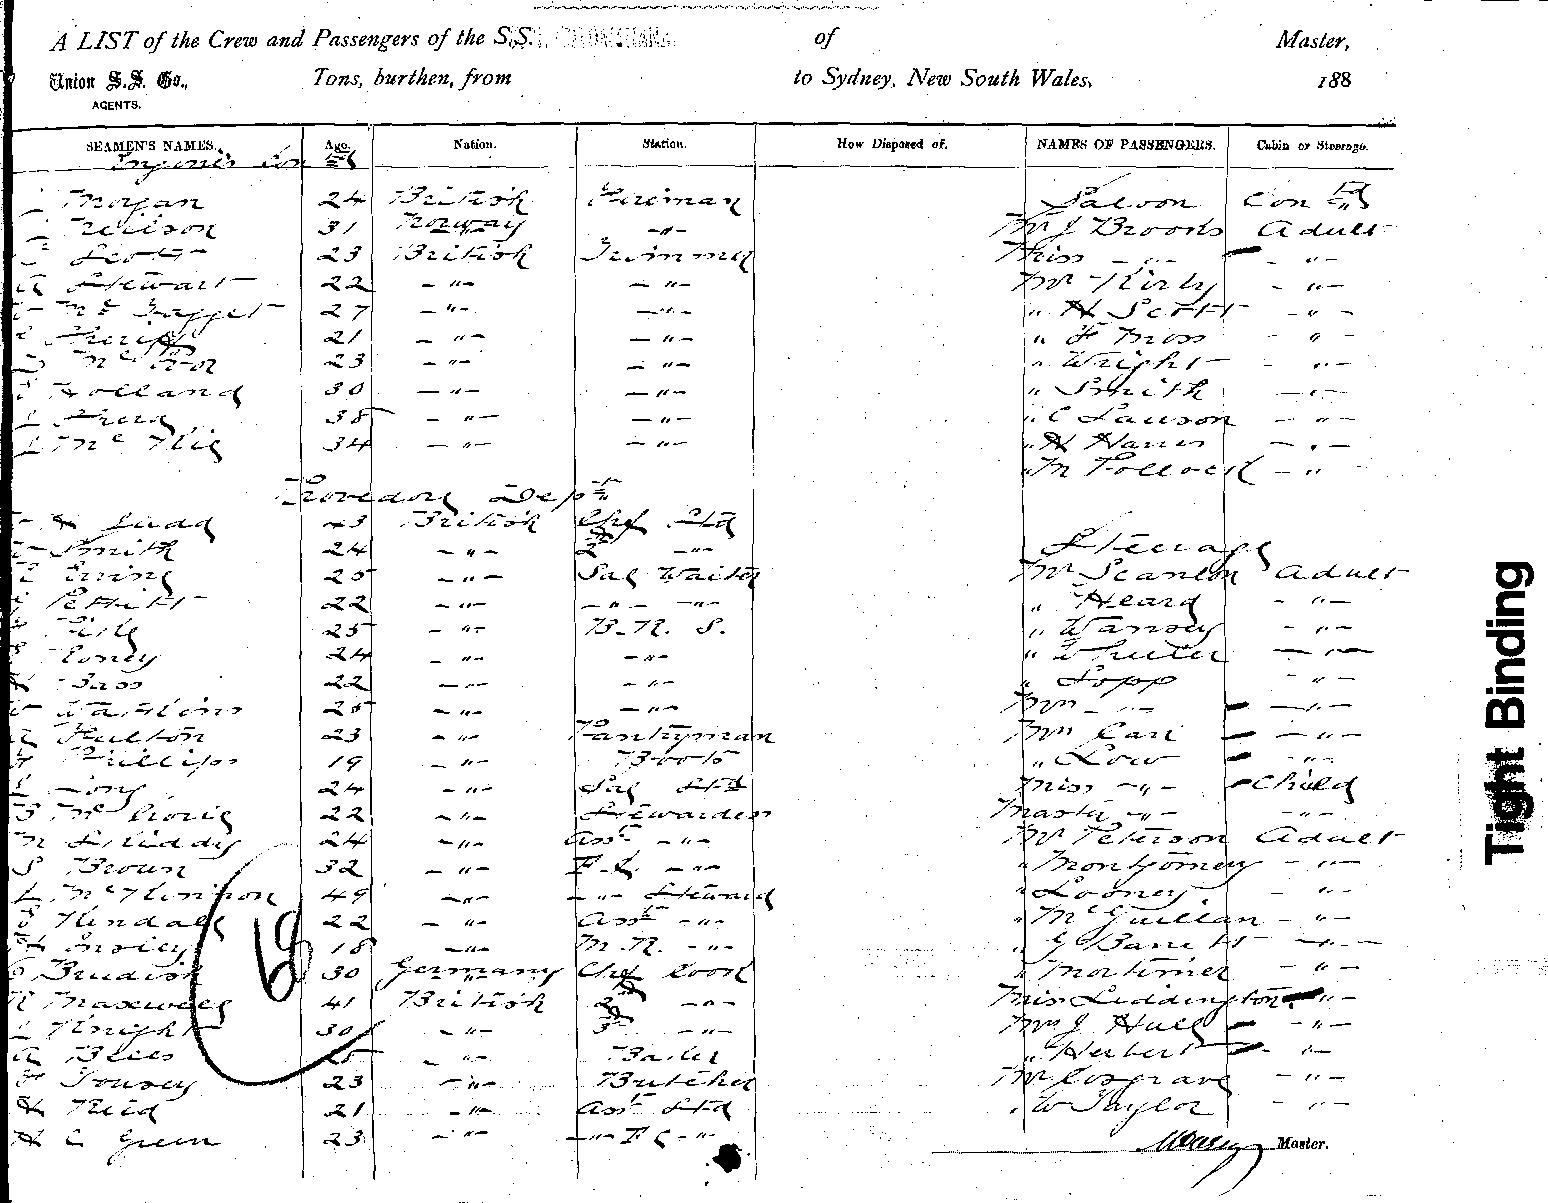 A LIST of the Crew and Passengers of the S.S. of Master,
Union S.S. Co., Tons, burthen, from to Sydney, New South Wales, 188
AGENTS.
SEAMEN'S NAMES. Age. Nation. Station. How Disposed of. NAMES OF PASSENGERS. Cabin or Steerage.
Morgan 24 British Fireman Saloon Con td
Neilson 31 Norway -"- Mr J Brooks Adult
Scott 23 British Trimmer Miss -"- -"-
A Stewart 22 -"- -"- Mr Kirby -"-
27 -"- -"- " H Scott -"-
21 -"- -"- " F Moss -"-
23 -"- -"- " Wright -"-
Holland 30 -"- -"- " Smith -"-
38 -"- -"- " C Lawson -"-
34 -"- -"- " H Harris -"-
" M Pollock -"
Provedory Dept
H Judd 43 British Chf Std
Smith 24 -"- 2nd -"- Steerage
Ewing 25 -"- Sal Waiter Mr Scanlon Adult
Pettitt 22 -"- -"- -"- " Heard -"-
25 -"- B.R. S. " Wansey -"-
24 -"- -"- " Wheeler -"-
Bass 22 -"- -"- " Topp -"-
Watkins 25 -"- -"- Mrs -"- -"-
Hulton 23 -"- Pantryman Mrs Carr -"-
Phillips 19 -"- Boots " Low -"-
Long 24 -"- Sal Std Miss -"- Child
22 -"- Stewardess Master -"- -"-
M 24 -"- Asst -"- Mr Peterson Adult
S Brown 32 -"- F.C. -"- " Montgomery -"-
L McKinnon 49 -"- -"- Steward " Looney -"-
Kendall 22 -"- Asst -"- " McGuillan -"-
Insley 18 -"- M.R. -"- " G Barrett -"-
30 Germany Chf Cook " Mortimer -"-
R Maxwell 41 British 2nd -"- Miss Liddington -"-
Knight 30 -"- 3rd -"- Mrs J Hull -"-
A Bees 25 -"- Baker " Herbert -"-
Tonsey 23 -"- Butcher Mr Cosgrave -"-
H Reid 21 -"- Asst Std " W Taylor -"-
H C Green 23 -"- -"- F C -"-
Master.
68
Tight Binding